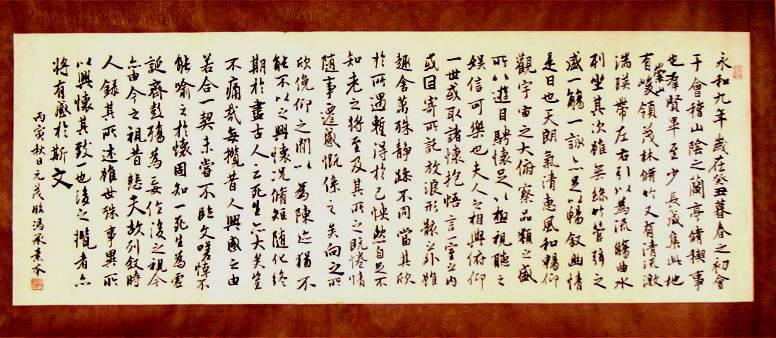 永和九年歲在癸丑暮春之初會
于會稽山陰之蘭亭脩禊事
也羣賢畢至少長咸集此地
有崇山峻領茂林脩竹又有清流激
湍暎帶左右引以為流觴曲水
列坐其次雖無絲竹管絃之
盛一觴一詠亦足以暢敘幽情
是日也天朗氣清惠風和暢仰
觀宇宙之大俯察品類之盛
所以遊目騁懷足以極視聽之
娛信可樂也夫人之相與俯仰
一世或取諸懷抱悟言一室之內
或因寄所託放浪形骸之外雖
趣舍萬殊靜躁不同當其欣
於所遇暫得於己怏然自足不
知老之將至及其所之既惓情
隨事遷感慨係之矣向之所
欣俛仰之閒以為陳迹猶不
能不以之興懷況脩短隨化終
期於盡古人云死生亦大矣豈
不痛哉每攬昔人興感之由
若合一契未嘗不臨文嗟悼不
能喻之於懷固知一死生為虛
誕齊彭殤為妄作後之視今
亦由今之視昔悲夫故列敘時
人錄其所述雖世殊事異所
以興懷其致一也後之攬者亦
將有感於斯文
丙寅秋日元茂臨馮承素本